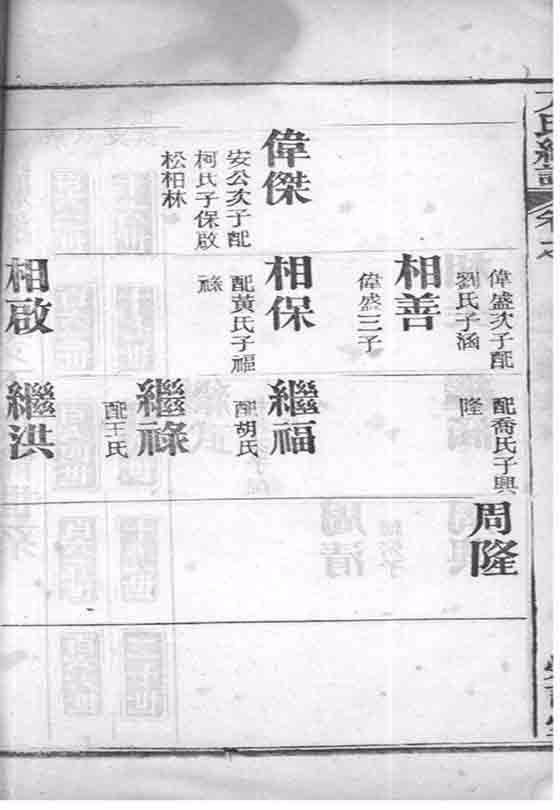 偉傑
安公次子配
柯氏子保啟
松柏林
偉盛次子配
劉氏子涵
相善
偉盛三子
相保
配黃氏子福
祿
相啟
配喬氏子興
隆
繼福
配胡氏
繼祿
配王氏
繼洪
周隆